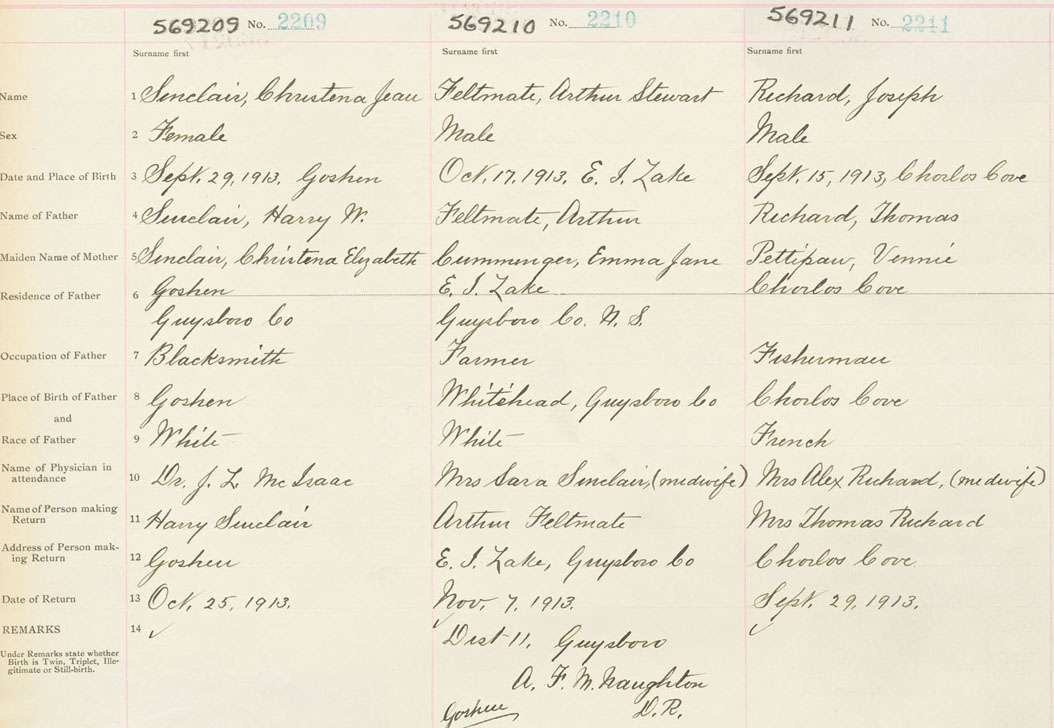 569209 No. 2209 569210 No. 2210 569211 No. 2211
Surname first Surname first Surname first
Name 1 Sinclair, Christena Jean Feltmate, Arthur Stewart Richard, Joseph
Sex 2 Female Male Male
Date and Place of Birth 3 Sept. 29, 1913. Goshen Oct. 17, 1913. E. I. Lake Sept. 15, 1913, Chorlos Cove
Name of Father 4 Sinclair, Harry W. Feltmate, Arthur Richard, Thomas
Maiden Name of Mother 5 Sinclair, Christena Elizabeth Cummenger, Emma Jane Pettipaw, Vennie
Residence of Father 6 Goshen E. I. Lake Chorlos Cove
Guysboro Co Guysboro Co. N. S.
Occupation of Father 7 Blacksmith Farmer Fisherman
Place of Birth of Father 8 Goshen Whitehead, Guysboro Co Chorlos Cove
and
Race of Father 9 White White French
Name of Physician in
attendance 10 Dr. J. L. McIsaac Mrs Sara Sinclair, (midwife) Mrs Alex Richard, (midwife)
Name of Person making
Return 11 Harry Sinclair Arthur Feltmate Mrs Thomas Richard
Address of Person mak-
ing Return 12 Goshen E. I. Lake, Guysboro Co Chorlos Cove.
Date of Return 13 Oct. 25, 1913. Nov. 7, 1913. Sept. 29, 1913.
REMARKS 14 ✓ Dist 11, Guysboro ✓
Under Remarks state whether
Birth is Twin, Triplet, Ille-
gitimate or Still-birth.
A. F. McNaughton
Goshen D. R.